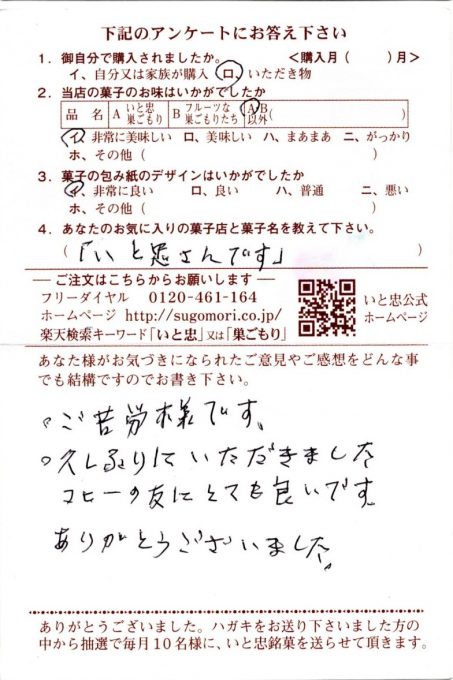 下記のアンケートにお答え下さい
1. 御自分で購入されましたか。 <購入月( )月>
イ、自分又は家族が購入 ロ、いただき物
2. 当店の菓子のお味はいかがでしたか
品 名 A いと忠巣ごもり B フルーツな巣ごもりたち A/B以外( )
イ、非常に美味しい ロ、美味しい ハ、まあまあ ニ、がっかり
ホ、その他( )
3. 菓子の包み紙のデザインはいかがでしたか
イ、非常に良い ロ、良い ハ、普通 ニ、悪い
ホ、その他( )
4. あなたのお気に入りの菓子店と菓子名を教えて下さい。
(「いと忠さんです」 )
―ご注文はこちらからお願いします―
フリーダイヤル 0120-461-164
ホームページ http://sugomori.co.jp/
楽天検索キーワード「いと忠」又は「巣ごもり」
いと忠公式
ホームページ
あなた様がお気づきになられたご意見やご感想をどんな事
でも結構ですのでお書き下さい。
。ご苦労様です。
。久しぶりにいただきました
コヒーの友にとても良いです
ありがとうございました。
ありがとうございました。ハガキをお送り下さいました方の
中から抽選で毎月10名様に、いと忠銘菓を送らせて頂きます。